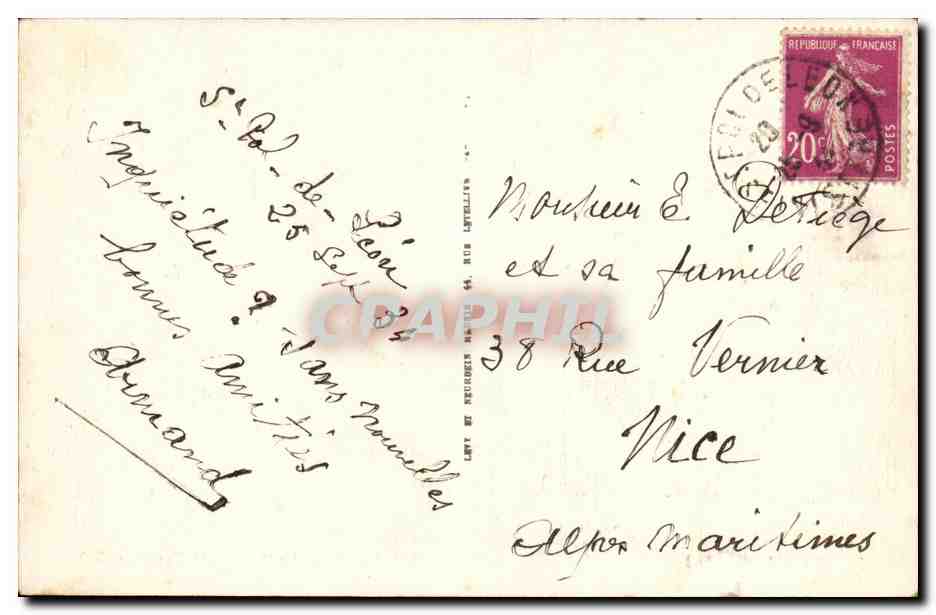 St Pol-de-Léon
25 Sept 34
Inquiétude ? Sans nouvelles
bonnes amitiés
Armand
LEVY ET NEURDEIN REUNIS 44. RUE LETELLIER
REPUBLIQUE FRANÇAISE
20c
POSTES
ST POL DE LEON
Monsieur E. Deliège
et sa famille
38 Rue Vernier
Nice
Alpes Maritimes
CPAPHIL